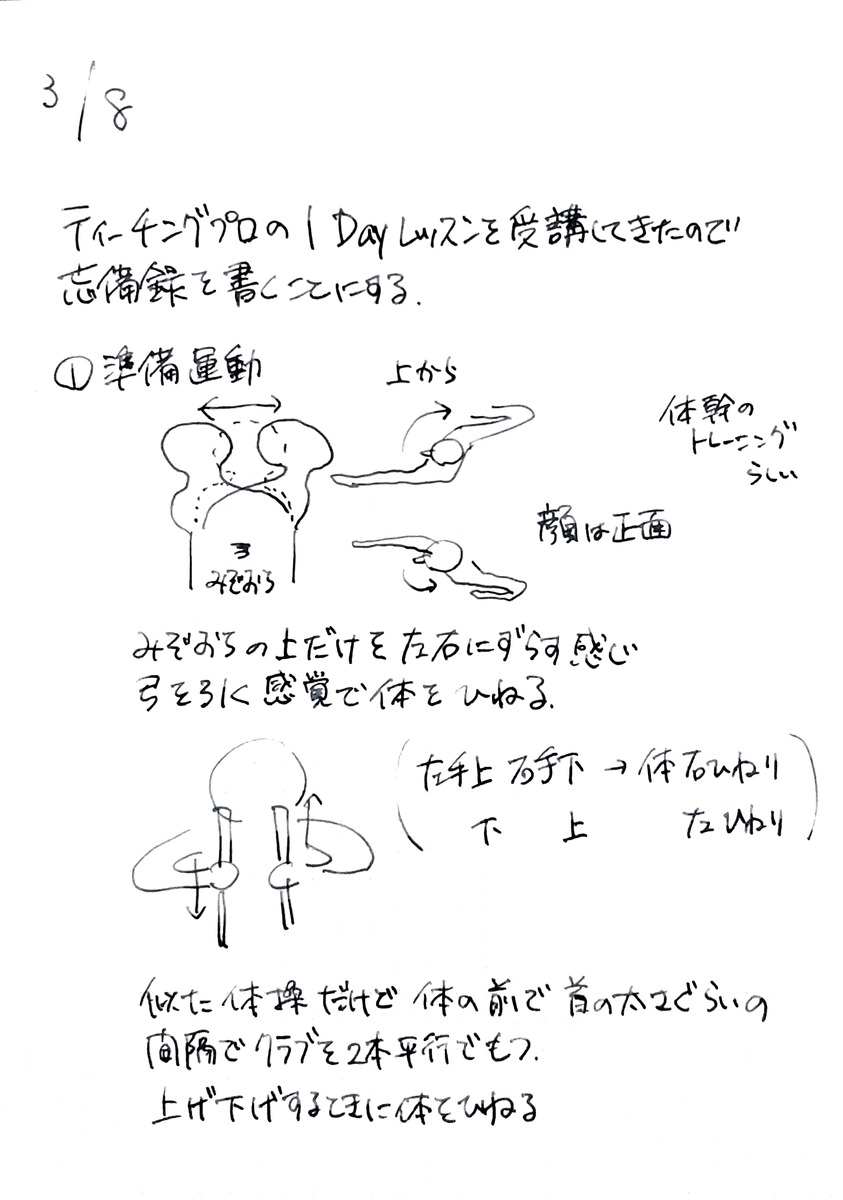 3/8
ティーチングプロの1 Day レッスンを受講してきたので
忘備録を書くことにする.
① 準備運動
上から
体幹の
トレーニング
らしい
顔は正面
みぞおち
みぞおちの上だけを左右にずらす感じ
弓をひく感覚で体をひねる.
(左手上 右手下 → 体右ひねり
下 上 左ひねり)
似た体操だけど 体の前で 首の太さぐらいの
間隔でクラブを2本平行でもつ.
上げ下げするときに体をひねる